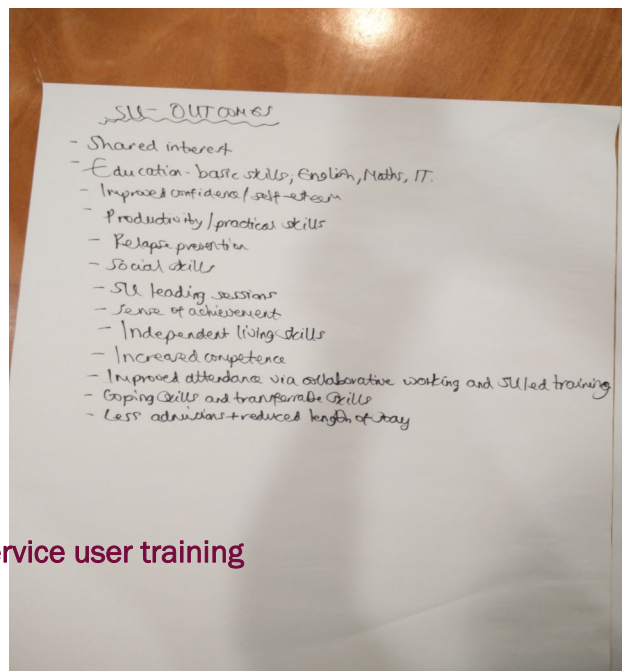 SU- OUTCOMES
- Shared interest
- Education - basic skills, English, Maths, IT.
- Improved confidence/self-esteem
- Productivity/practical skills
- Relapse prevention
- Social skills
- SU leading sessions
- Sense of achievement
- Independent living skills
- Increased competence
- Improved attendance via collaborative working and SU led training
- Coping skills and transferrable skills
- Less admissions + reduced length of stay
ervice user training